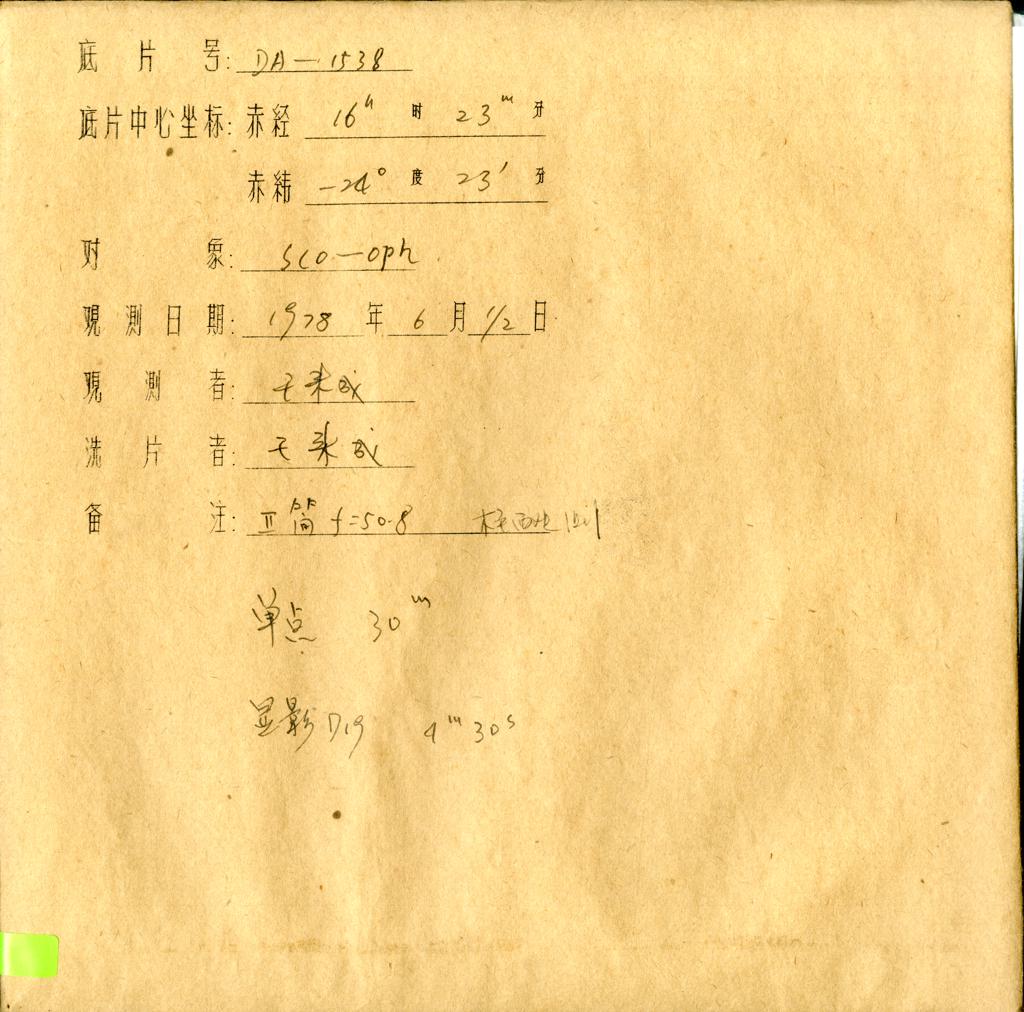 底片号: DA—1538
底片中心坐标: 赤经 16ʰ 时 23ᵐ 分
赤緯 -24° 度 23′ 分
对象: Sco—oph
观测日期: 1978 年 6 月 1/2 日
观测者: 王来成
洗片者: 王来成
备注: II筒 f=50.8
单点 30ᵐ
显影 D19 4ᵐ30ˢ